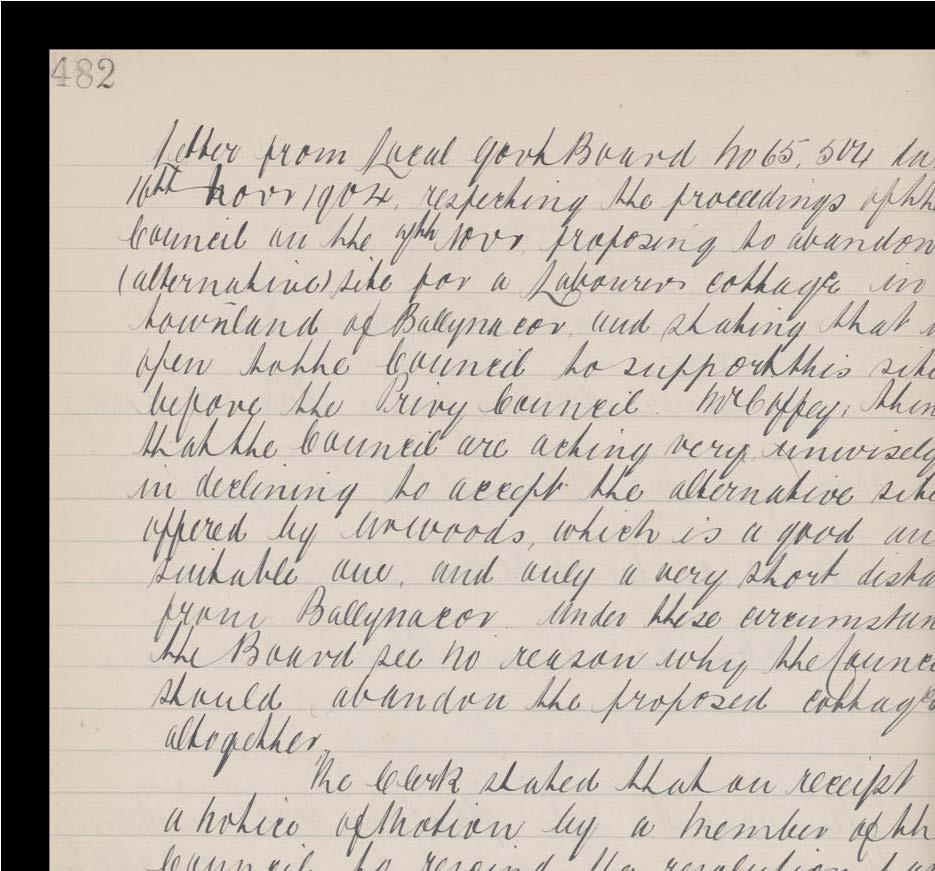 482
Letter from Local Govt Board No 65,504 da
16th Novr 1904, respecting the proceedings of th
Council on the 7th Novr, proposing to abandon
(alternative) site for a Labourers cottage in
townland of Ballynacor, and stating that
open to the Council to support this site
before the Privy Council. Mr Coffey, thin
that the Council are acting very unwisely
in declining to accept the alternative site
offered by woods, which is a good an
suitable one, and only a very short dista
from Ballynacor. Under these circumstan
the Board see no reason why the Counci
should abandon the proposed cottage
altogether,
The Clerk stated that on receipt
a notice of Motion by a member of th
Council to rescind the resolution